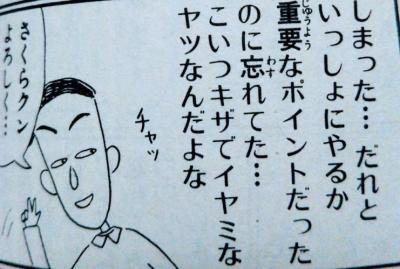 しまった…だれと
いっしょにやるか
重要なポイントだった
じゅうよう
のに忘れてた…
わす
こいつキザでイヤミな
ヤツなんだよな
チャッ
さくらクン
よろしく…